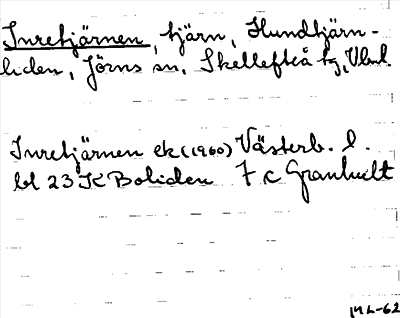 Inretjärnen, tjärn, Hundtjärn-
liden, Jörns sn, Skellefteå tg, Vbtl.
Inretjärnen ek (1960) Västerb. l.
bl 23 K Boliden 7 c Granhult
ML-62